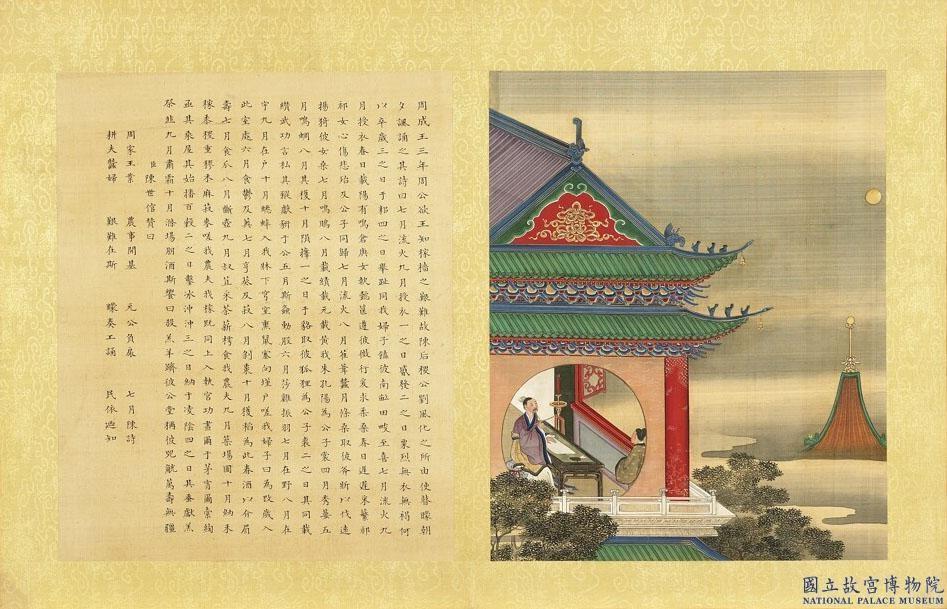 周成王三年周公欲王知稼穡之艱難故陳后稷公劉風化之所由使瞽矇朝
夕諷誦之其詩曰七月流火九月授衣一之日觱發二之日栗烈無衣無褐何
以卒歲三之日于耜四之日舉趾同我婦子饁彼南畝田畯至喜七月流火九
月授衣春日載陽有鳴倉庚女執懿筐遵彼微行爰求柔桑春日遲遲采蘩祁
祁女心傷悲殆及公子同歸七月流火八月萑葦蠶月條桑取彼斧斨以伐遠
揚猗彼女桑七月鳴鵙八月載績載元載黃我朱孔陽為公子裳四月秀葽五
月鳴蜩八月其穫十月隕蘀一之日于貉取彼狐狸為公子裘二之日其同載
纘武功言私其豵獻豜于公五月斯螽動股六月莎雞振羽七月在野八月在
宇九月在戶十月蟋蟀入我牀下穹窒熏鼠塞向墐戶嗟我婦子曰為改歲入
此室處六月食鬱及薁七月亨葵及菽八月剝棗十月穫稻為此春酒以介眉
壽七月食瓜八月斷壺九月叔苴采荼薪樗食我農夫九月築場圃十月納禾
稼黍稷重穋禾麻菽麥嗟我農夫我稼既同上入執宮功晝爾于茅宵爾索綯
亟其乘屋其始播百穀二之日鑿冰沖沖三之日納于凌陰四之日其蚤獻羔
祭韭九月肅霜十月滌場朋酒斯饗曰殺羔羊躋彼公堂稱彼兕觥萬壽無疆
臣陳世倌贊曰
周家王業 農事開基 元公負扆 七月陳詩
耕夫蠶婦 艱難在斯 矇奏工誦 民依迺知
國立故宮博物院
NATIONAL PALACE MUSEUM